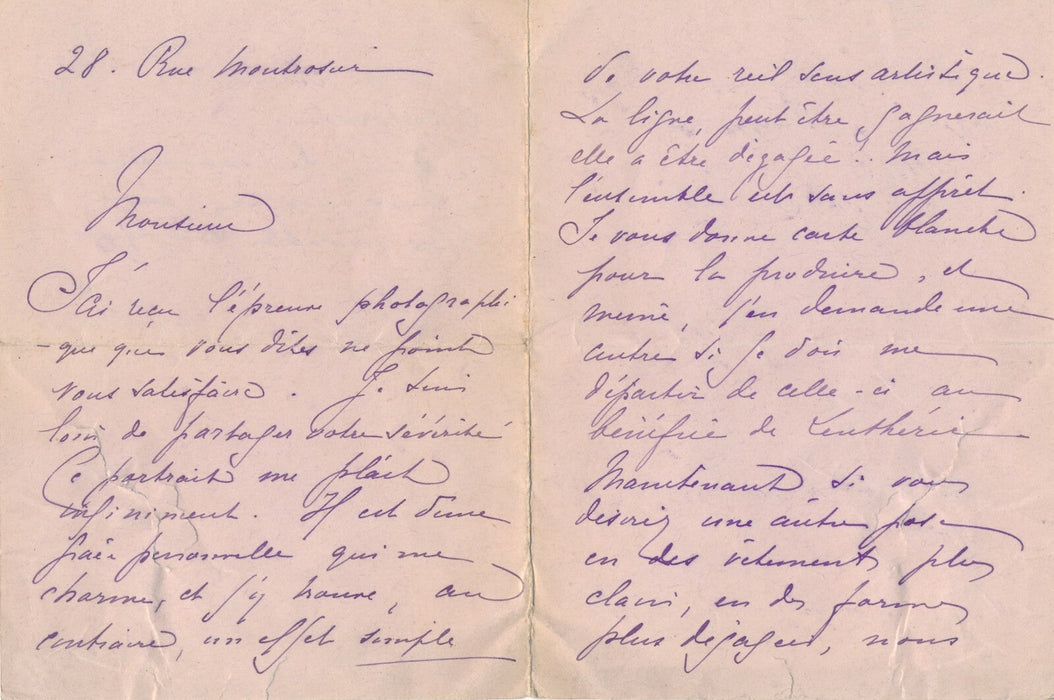 28. Rue Montrosier
Monsieur
J'ai reçu l'épreuve photographi
-que que vous dites ne point
vous satisfaire. Je suis
loin de partager votre sévérité
Ce portrait me plaît
infiniment. Il est d'une
grâce personnelle qui me
charme, et j'y trouve, au
contraire, un effet simple
de votre réel sens artistique.
La ligne, peut être, gagnerait
elle a être dégagée.. mais
l'ensemble est sans apprêt.
Je vous donne carte blanche
pour la produire, et
meme, j'en demande une
autre si je dois me
départir de celle-ci au
bénéfice de Lenthéric
Maintenant si vous
désirez une autre pose
en des vêtements plus
clairs, en des formes
plus dégagées, nous